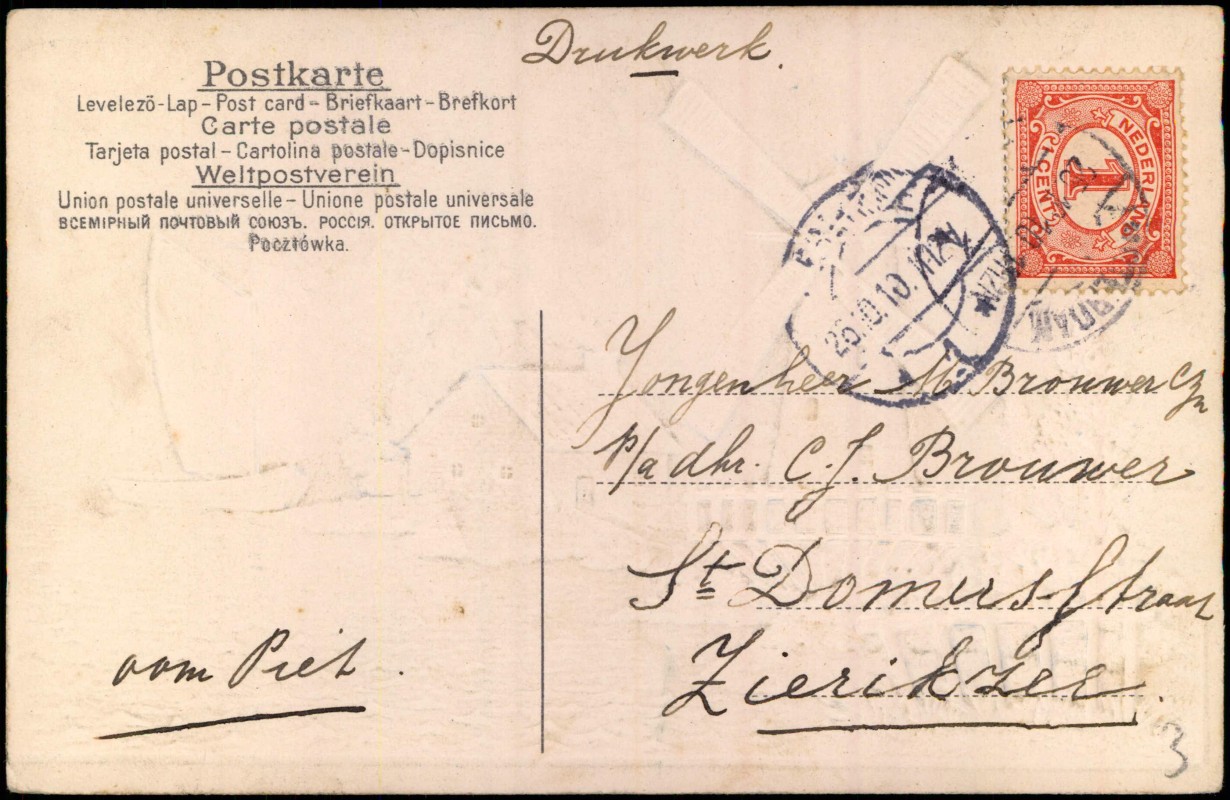 Drukwerk.
Postkarte
Levelező-Lap – Post card – Briefkaart – Brefkort
Carte postale
Tarjeta postal – Cartolina postale – Dopisnice
Weltpostverein
Union postale universelle – Unione postale universale
ВСЕМІРНЫЙ ПОЧТОВЫЙ СОЮЗЪ. РОССІЯ. ОТКРЫТОЕ ПИСЬМО.
Pocztówka.
NEDERLAND
1
CENT
25.10.10.
Jongenheer M. Brouwer Czn
p/a dhr. C. J. Brouwer
St Domusstraat
Zierikzee.
oom Piet.
3